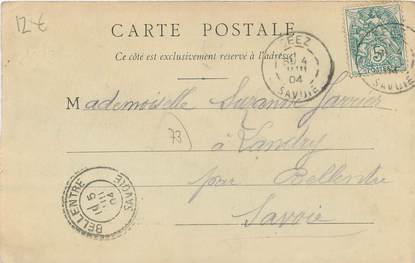 12 €
CARTE POSTALE
Ce côté est exclusivement réservé à l'adresse
SEEZ
4
04
SAVOIE
5
04
Mademoiselle Suzanne
73
à Landry
par Bellentre
Savoie
BELLENTRE
5
04
SAVOIE